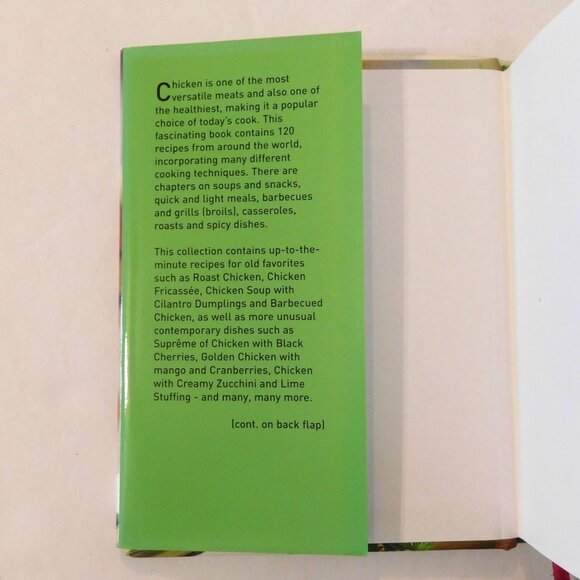 Chicken is one of the most
versatile meats and also one of
the healthiest, making it a popular
choice of today's cook. This
fascinating book contains 120
recipes from around the world,
incorporating many different
cooking techniques. There are
chapters on soups and snacks,
quick and light meals, barbecues
and grills (broils), casseroles,
roasts and spicy dishes.
This collection contains up-to-the-
minute recipes for old favorites
such as Roast Chicken, Chicken
Fricassée, Chicken Soup with
Cilantro Dumplings and Barbecued
Chicken, as well as more unusual
contemporary dishes such as
Suprême of Chicken with Black
Cherries, Golden Chicken with
mango and Cranberries, Chicken
with Creamy Zucchini and Lime
Stuffing - and many, many more.
(cont. on back flap)